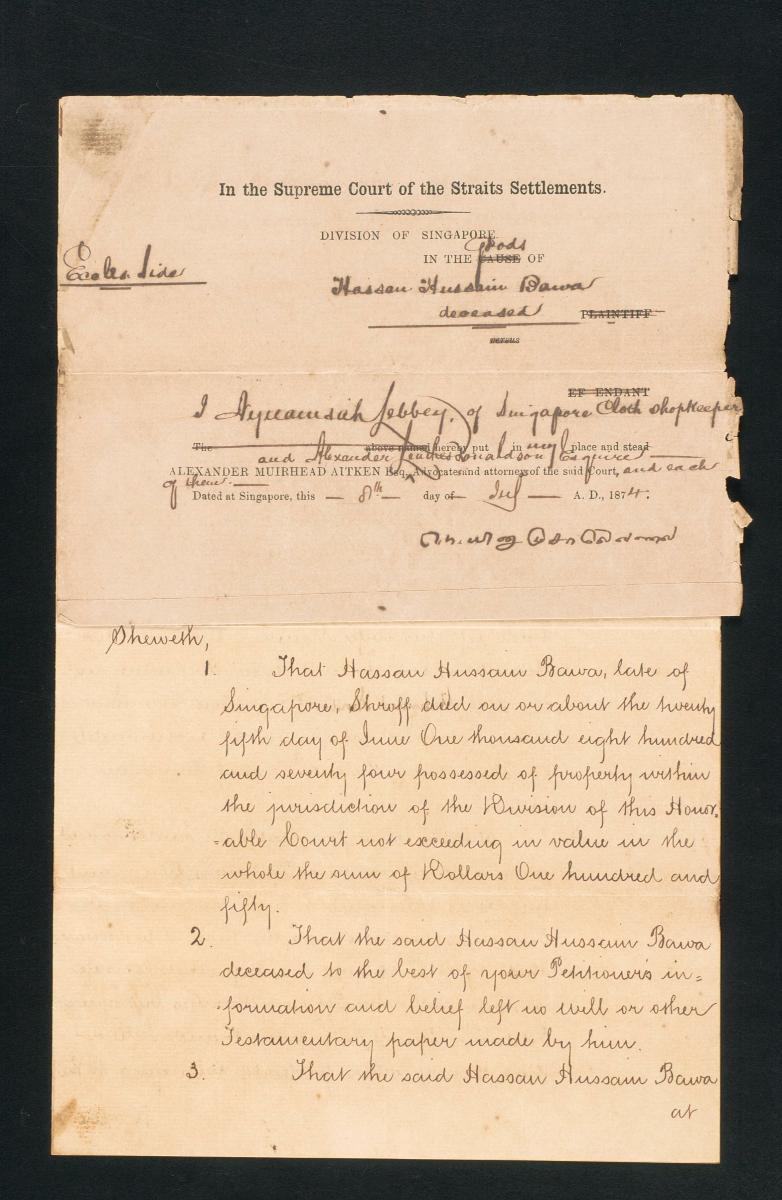 In the Supreme Court of the Straits Settlements.
DIVISION OF SINGAPORE.
Goods
IN THE CAUSE OF
Eccles. Side
Hassan Hussain Bawa
deceased PLAINTIFF
versus
EF ENDANT
I Lebbey, of Singapore Cloth Shopkeeper
The above named hereby put in my place and stead
and Alexander Donaldson Esquire
ALEXANDER MUIRHEAD AITKEN Esq. Advocates and attorneys of the said Court, and each
of them.
Dated at Singapore, this 8th day of July A. D., 1874.
Sheweth,
1. That Hassan Hussain Bawa, late of
Singapore, Shroff died on or about the twenty
fifth day of June One thousand eight hundred
and seventy four possessed of property within
the jurisdiction of the Division of this Honor-
=able Court not exceeding in value in the
whole the sum of Dollars One hundred and
fifty.
2. That the said Hassan Hussain Bawa
deceased to the best of your Petitioner's in=
-formation and belief left no will or other
Testamentary paper made by him.
3. That the said Hassan Hussain Bawa
at